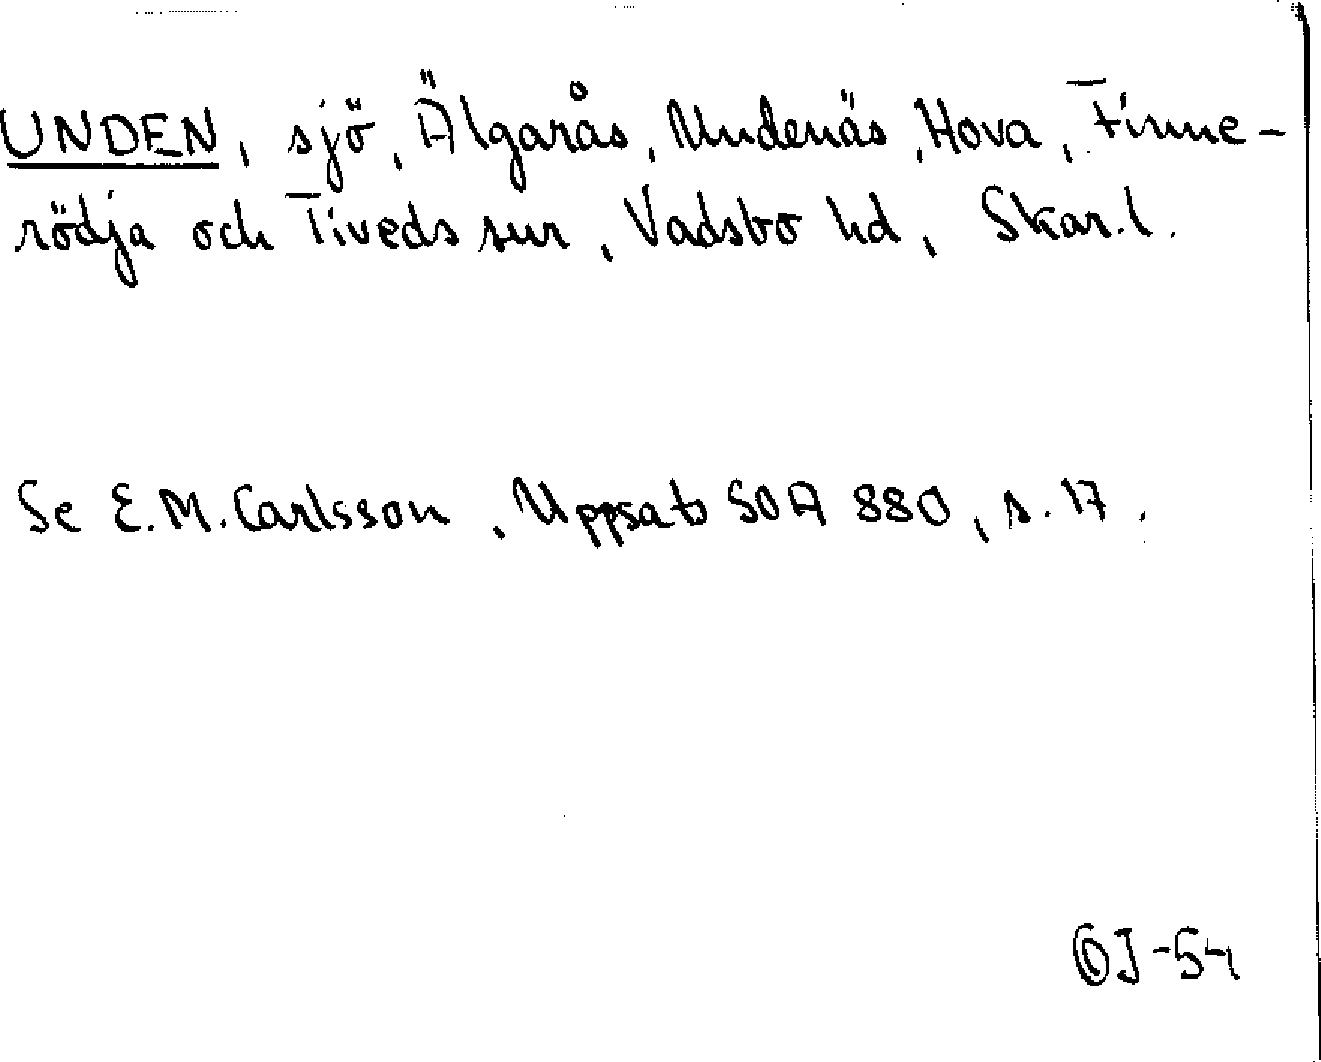 UNDEN, sjö, Älgarås, Undenäs, Hova, Finne-
rödja och Tiveds snr, Vadsbo hd, Skar.l.
Se E.M. Carlsson, Uppsats SOA 880, s. 17.